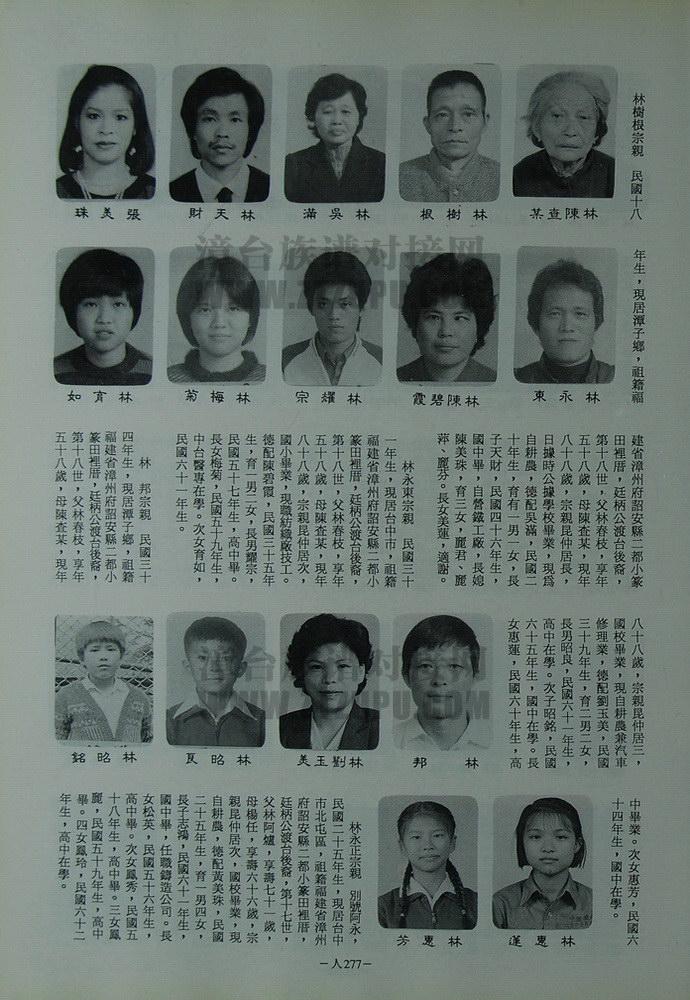 林樹根宗親　民國十八
林陳查某
林樹根
林吳滿
林天財
張美珠
年生，現居潭子鄉，祖籍福
林永東
林陳碧霞
林耀宗
林梅菊
林育如
建省漳州府詔安縣二都小篆
田裡厝，廷柄公渡台後裔，
第十八世，父林春枝，享年
五十八歲，母陳查某，現年
八十八歲，宗親昆仲居長，
日據時公據學校畢業，現為
自耕農，德配吳滿，民國二
十年生，育有一男一女，長
子天財，民國四十六年生，
國中畢，自營鐵工廠，長媳
陳美珠，育三女，麗君、麗
萍、麗芬。長女美蓮，適謝。
林永東宗親　民國三十
一年生，現居台中市，祖籍
福建省漳州府詔安縣二都小
篆田裡厝，廷柄公渡台後裔，
第十八世，父林春枝，享年
五十八歲，母陳查某，現年
八十八歲，宗親昆仲居次，
國小畢業，現職紡織廠技工。
德配陳碧霞，民國三十五年
生，育一男二女，長男耀宗，
民國五十七年生，高中畢。
長女梅菊，民國五十九年生，
中台醫專在學。次女育如，
民國六十一年生。
林　邦宗親　民國三十
四年生，現居潭子鄉，祖籍
福建省漳州府詔安縣二都小
篆田裡厝，廷柄公渡台後裔，
第十八世，父林春枝，享年
五十八歲，母陳查某，現年
八十八歲，宗親昆仲居三，
國校畢業，現自耕農兼汽車
修理業，德配劉玉美，民國
三十九年生，育二男二女，
長男昭良，民國六十一年生，
高中在學。次子昭銘，民國
六十五年生，國中在學。長
女惠蓮，民國六十年生，高
林　邦
林劉玉美
林昭良
林昭銘
中畢業。次女惠芳，民國六
十四年生，國中在學。
林惠蓮
林惠芳
林永正宗親　別號阿永，
民國二十五年生，現居台中
市北屯區，祖籍福建省漳州
府詔安縣二都小篆田裡厝，
廷柄公渡台後裔，第十七世，
父林阿爐，享壽七十一歲，
母楊任，享壽六十六歲，宗
親昆仲居次，國校畢業，現
自耕農，德配黃美珠，民國
二十五年生，育一男四女，
長子志鴻，民國六十一年生，
國中畢，任職鑄造公司。長
女松英，民國五十六年生，
高中畢。次女鳳秀，民國五
十八年生，高中畢。三女鳳
麗，民國五十九年生，高中
畢。四女鳳玲，民國六十二
年生，高中在學。
－人277－
漳台族谱对接网
漳台族谱对接网